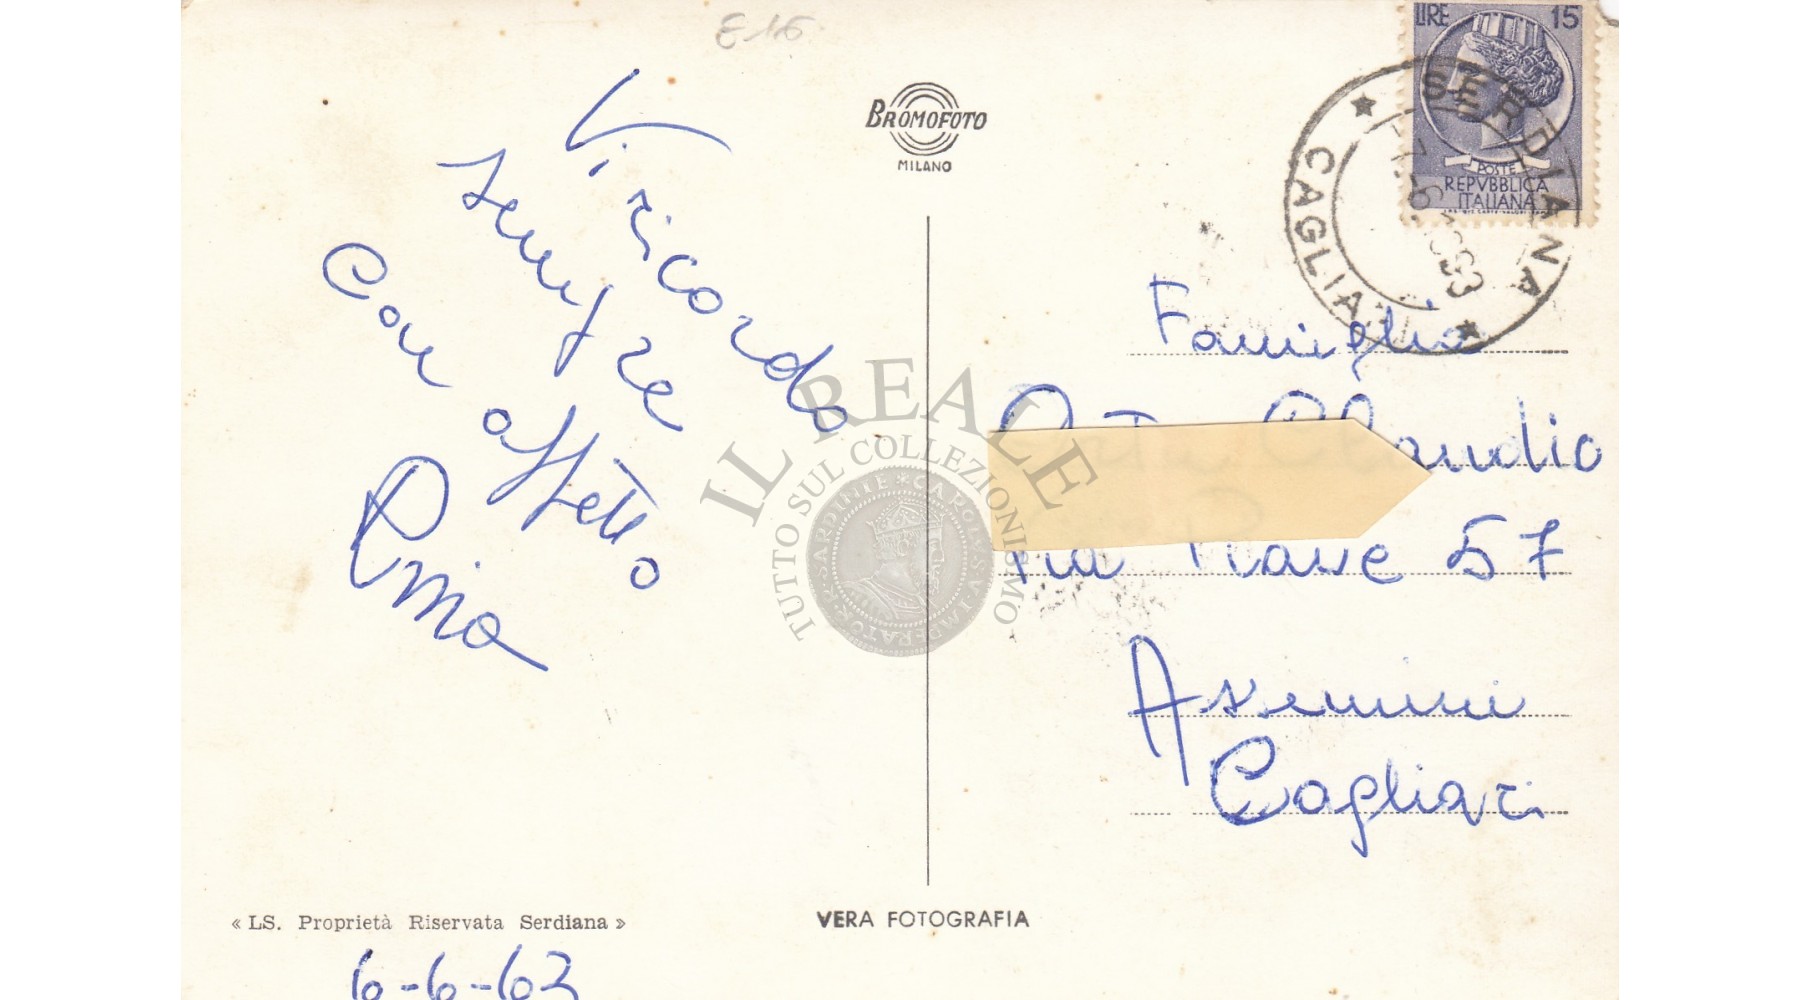 £ 15
BROMOFOTO
MILANO
LIRE 15
POSTE
REPVBBLICA
ITALIANA
SERDIANA
CAGLIARI
Vi ricordo
sempre
con affetto
Pina
Famiglia
Claudio
Via Piave 57
Assemini
Cagliari
IL REALE
TUTTO SUL COLLEZIONISMO
« LS. Proprietà Riservata Serdiana »
VERA FOTOGRAFIA
6-6-63